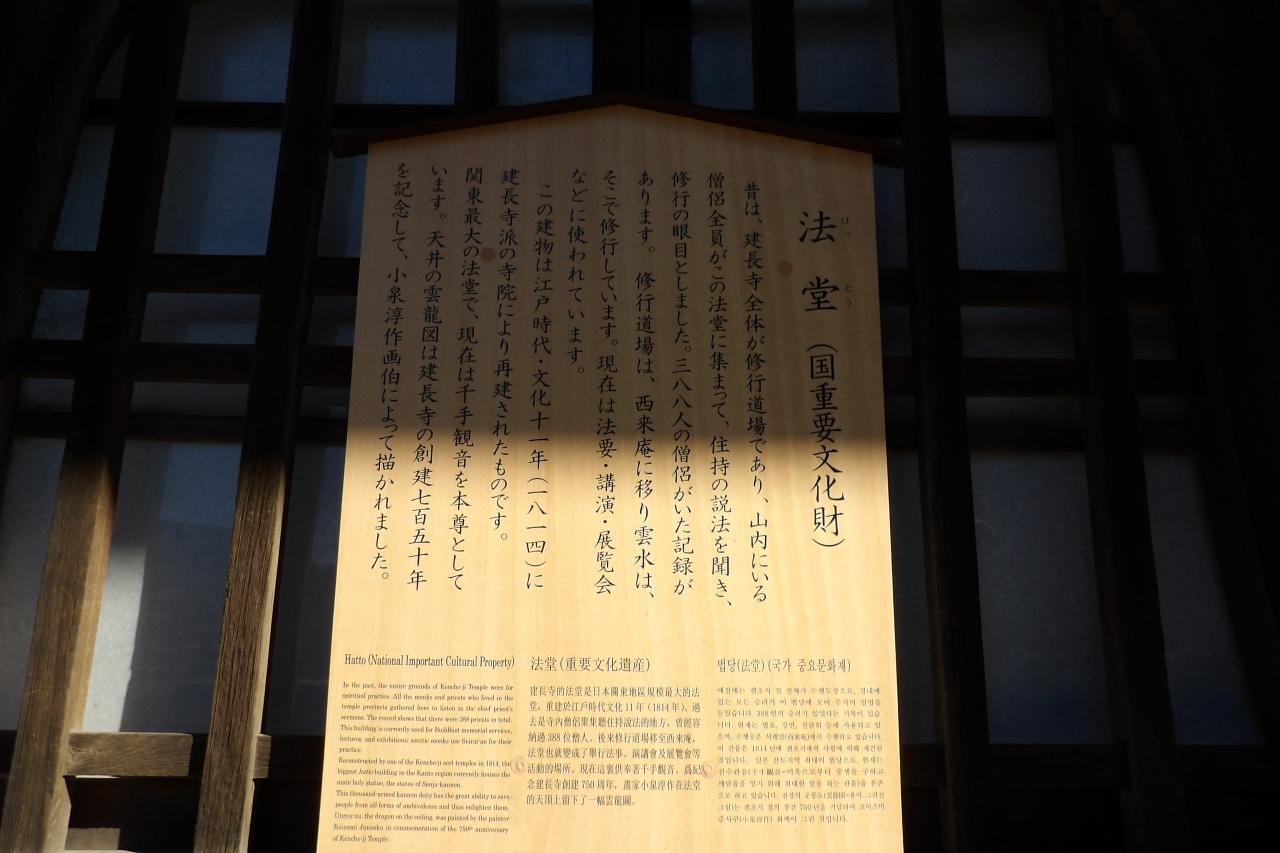 法堂(国重要文化財)
はっ とう
昔は、建長寺全体が修行道場であり、山内にいる
僧侶全員がこの法堂に集まって、住持の説法を聞き、
修行の眼目としました。三八八人の僧侶がいた記録が
あります。 修行道場は、西来庵に移り雲水は、
そこで修行しています。現在は法要・講演・展覧会
などに使われています。
この建物は江戸時代・文化十一年(一八一四)に
建長寺派の寺院により再建されたものです。
関東最大の法堂で、現在は千手観音を本尊として
います。天井の雲龍図は建長寺の創建七百五十年
を記念して、小泉淳作画伯によって描かれました。
Hatto (National Important Cultural Property)
In the past, the entire grounds of Kencho-ji Temple were for
spiritual practice. All the monks and priests who lived in the
temple precincts gathered here to listen to the chief priest's
sermons. The record shows that there were 388 priests in total.
This building is currently used for Buddhist memorial services,
lectures, and exhibitions: ascetic monks use Seirai'an for their
practice.
Reconstructed by one of the Kencho-ji sect temples in 1814, the
biggest hatto building in the Kanto region currently houses the
main holy statue, the statue of Senju-kannon.
This thousand-armed kannon deity has the great ability to save
people from all forms of ambivalence and thus enlighten them.
Unryu-zu, the dragon on the ceiling, was painted by the painter
Koizumi Junsaku in commemoration of the 750th anniversary
of Kencho-ji Temple.
法堂(重要文化遺産)
建長寺的法堂是日本關東地區規模最大的法
堂,重建於江戶時代文化11年(1814年)。過
去是寺內僧侶聚集聽住持說法的地方,曾經容
納過388位僧人。後來修行道場移至西來庵,
法堂也就變成了舉行法事、演講會及展覽會等
活動的場所。現在這裏供奉著千手觀音。爲紀
念建長寺創建750周年,畫家小泉淳作在法堂
的天頂上留下了一幅雲龍圖。
법당(法堂) (국가 중요문화재)
예전에는 겐초지 절 전체가 수행도장으로, 경내에
있는 모든 승려가 이 법당에 모여 주지의 설법을
들었습니다. 388인의 승려가 있었다는 기록이 있습
니다. 현재는 법요, 강연, 전람회 등에 사용되고 있
으며, 수행승은 서래암(西来庵)에서 수행하고 있습니다.
이 건물은 1814년에 겐초지파의 사원에 의해 재건된
것입니다. 일본 간토지역 최대의 법당으로, 현재는
천수관음(千手観音=미혹으로부터 중생을 구하고
깨달음을 얻기 위해 위대한 일을 하는 관음)을 본존
으로 하고 있습니다. 천장의 운룡도(雲龍図=용이 그려진
그림)는 겐초지 절의 창건 750년을 기념하여 고이즈미
준사쿠(小泉淳作) 화백이 그린 것입니다.